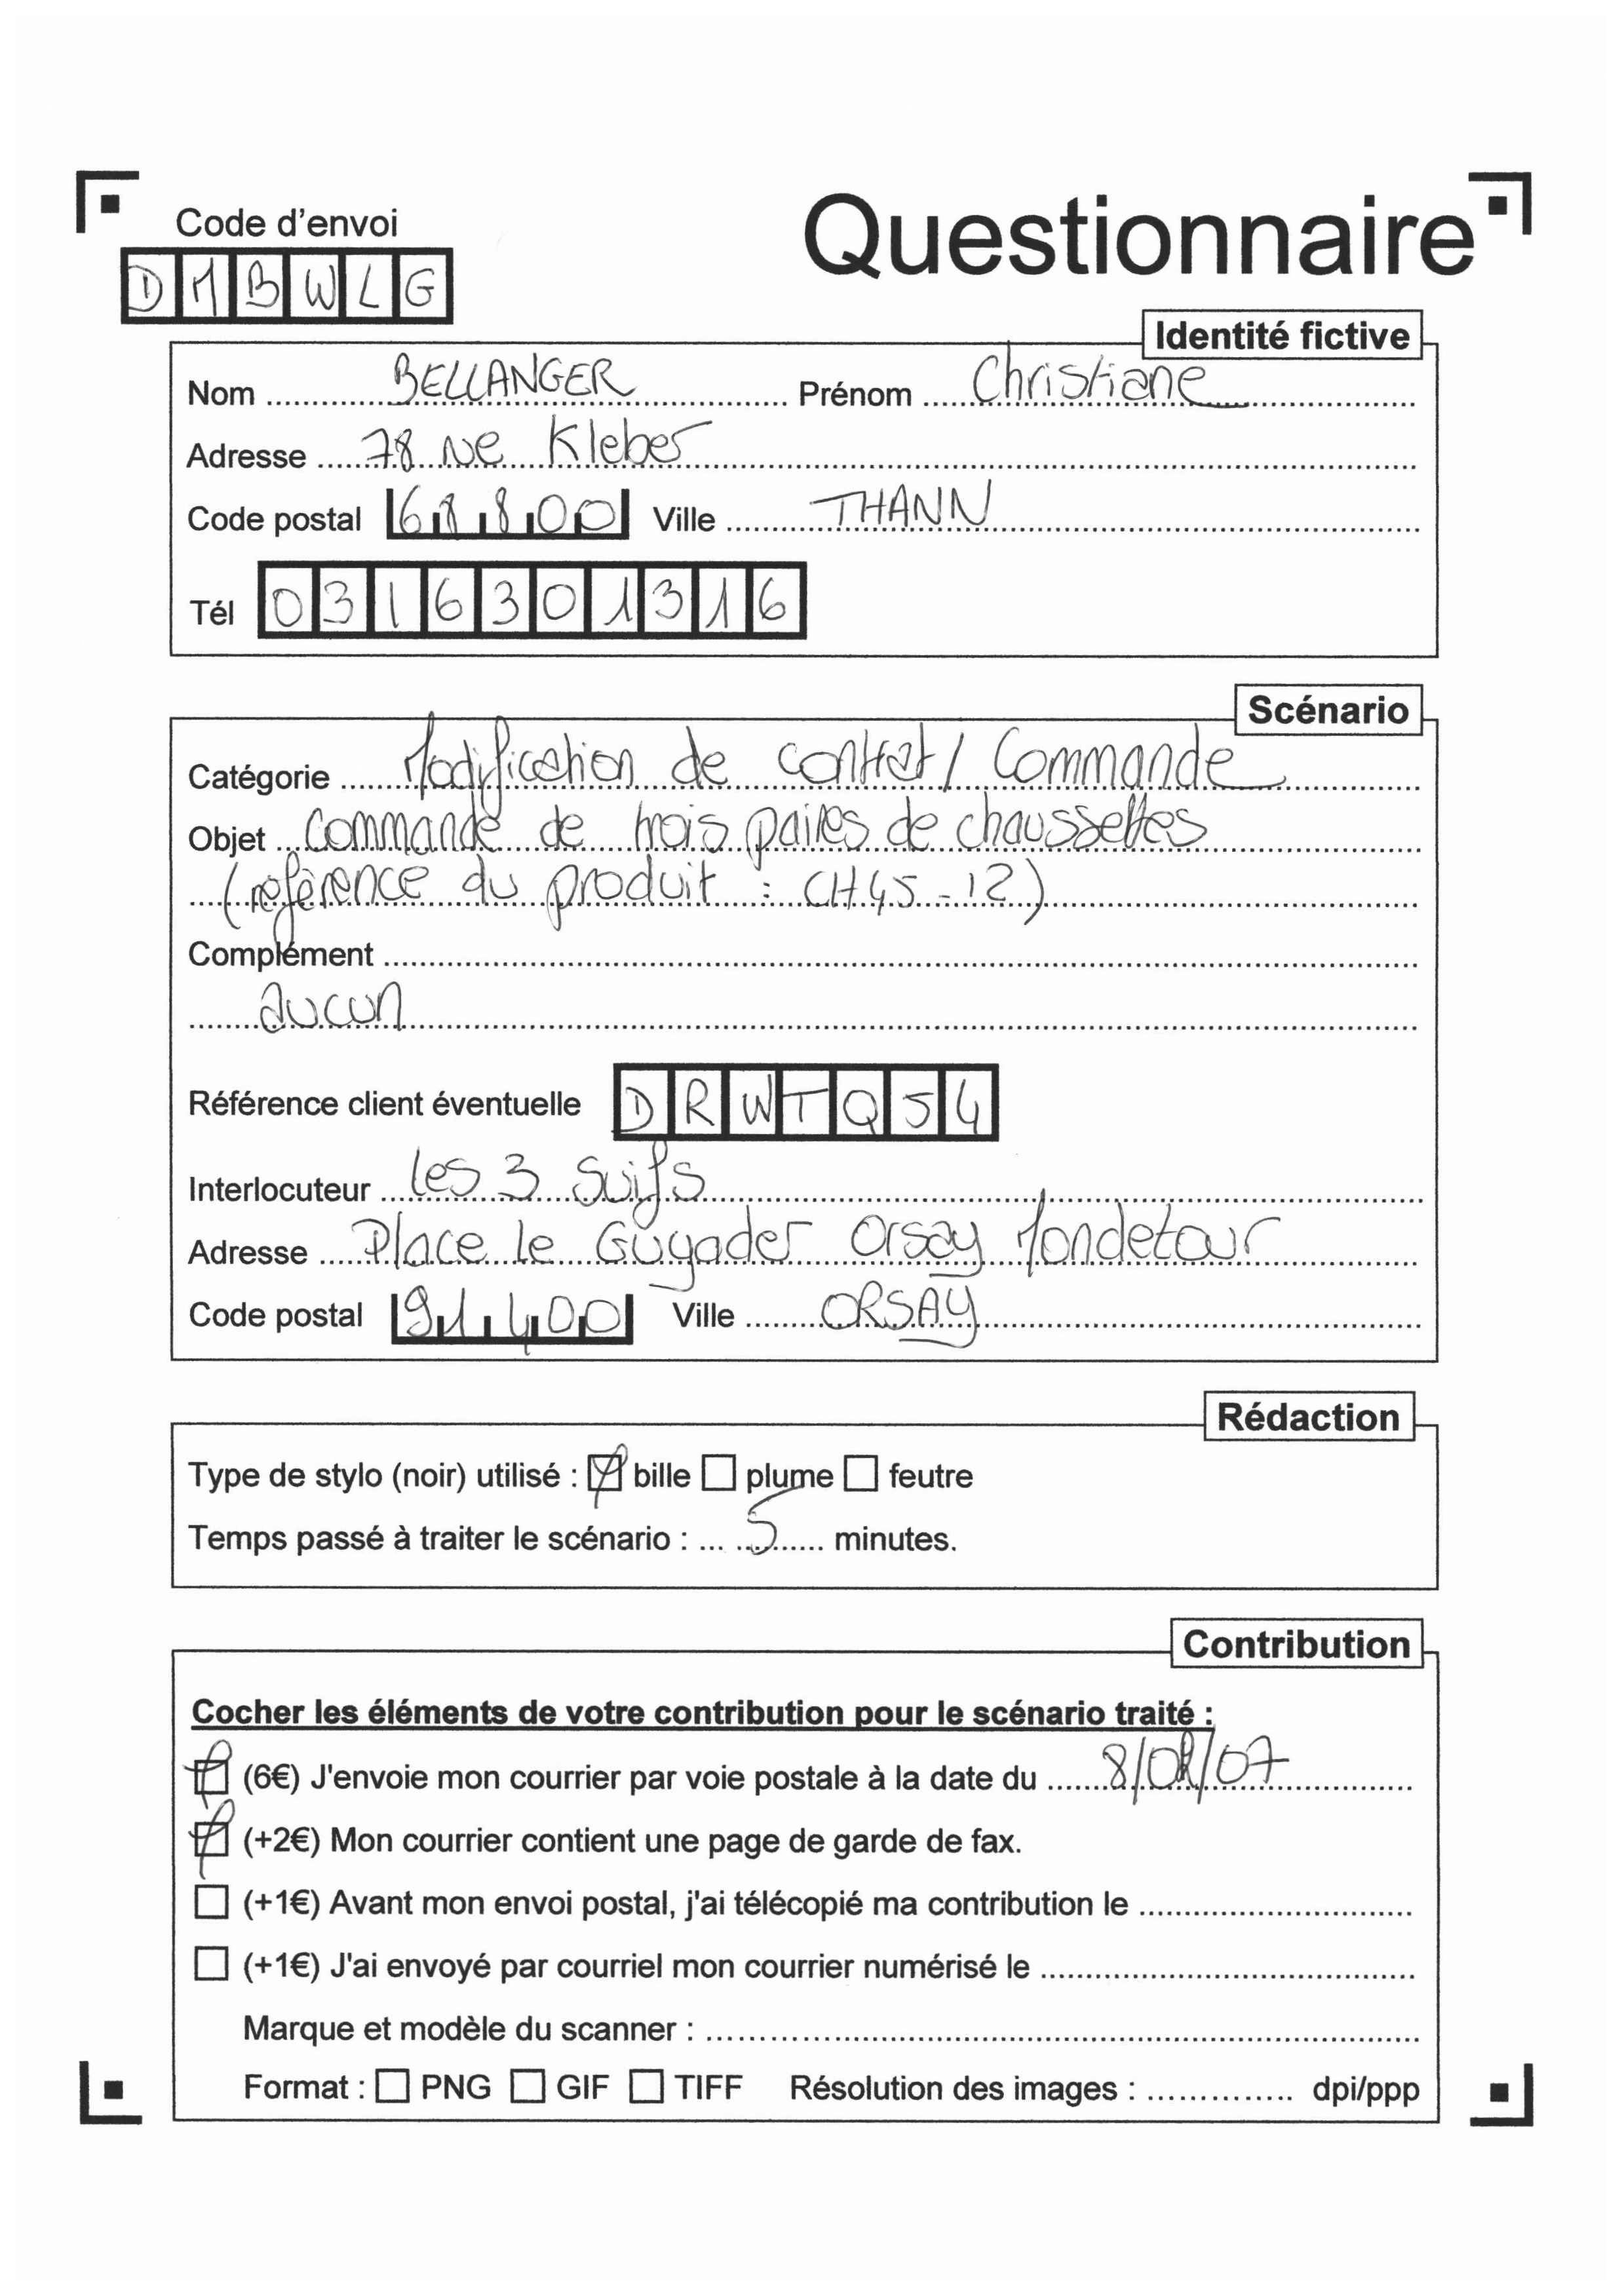 Code d'envoi
Questionnaire
DMBWLG
Identité fictive
Nom BELLANGER Prénom Christiane
Adresse 78 rue Kleber
Code postal 68800 Ville THANN
Tél 0316301316
Scénario
Catégorie Modification de contrat / Commande
Objet Commande de trois paires de chaussettes
(référence du produit : CH45-12)
Complément
aucun
Référence client éventuelle DRWTQ54
Interlocuteur les 3 Suifs
Adresse Place le Guyader Orsay Mondetour
Code postal 91400 Ville ORSAY
Rédaction
Type de stylo (noir) utilisé : bille plume feutre
Temps passé à traiter le scénario : ... 5 ... minutes.
Contribution
Cocher les éléments de votre contribution pour le scénario traité :
(6€) J'envoie mon courrier par voie postale à la date du 8/02/07
(+2€) Mon courrier contient une page de garde de fax.
(+1€) Avant mon envoi postal, j'ai télécopié ma contribution le
(+1€) J'ai envoyé par courriel mon courrier numérisé le
Marque et modèle du scanner :
Format : PNG GIF TIFF Résolution des images : dpi/ppp